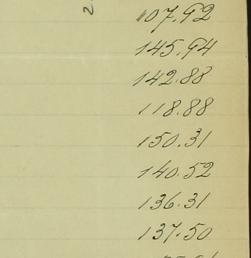 2
107.92
145.94
142.88
118.88
150.31
140.52
136.31
137.50